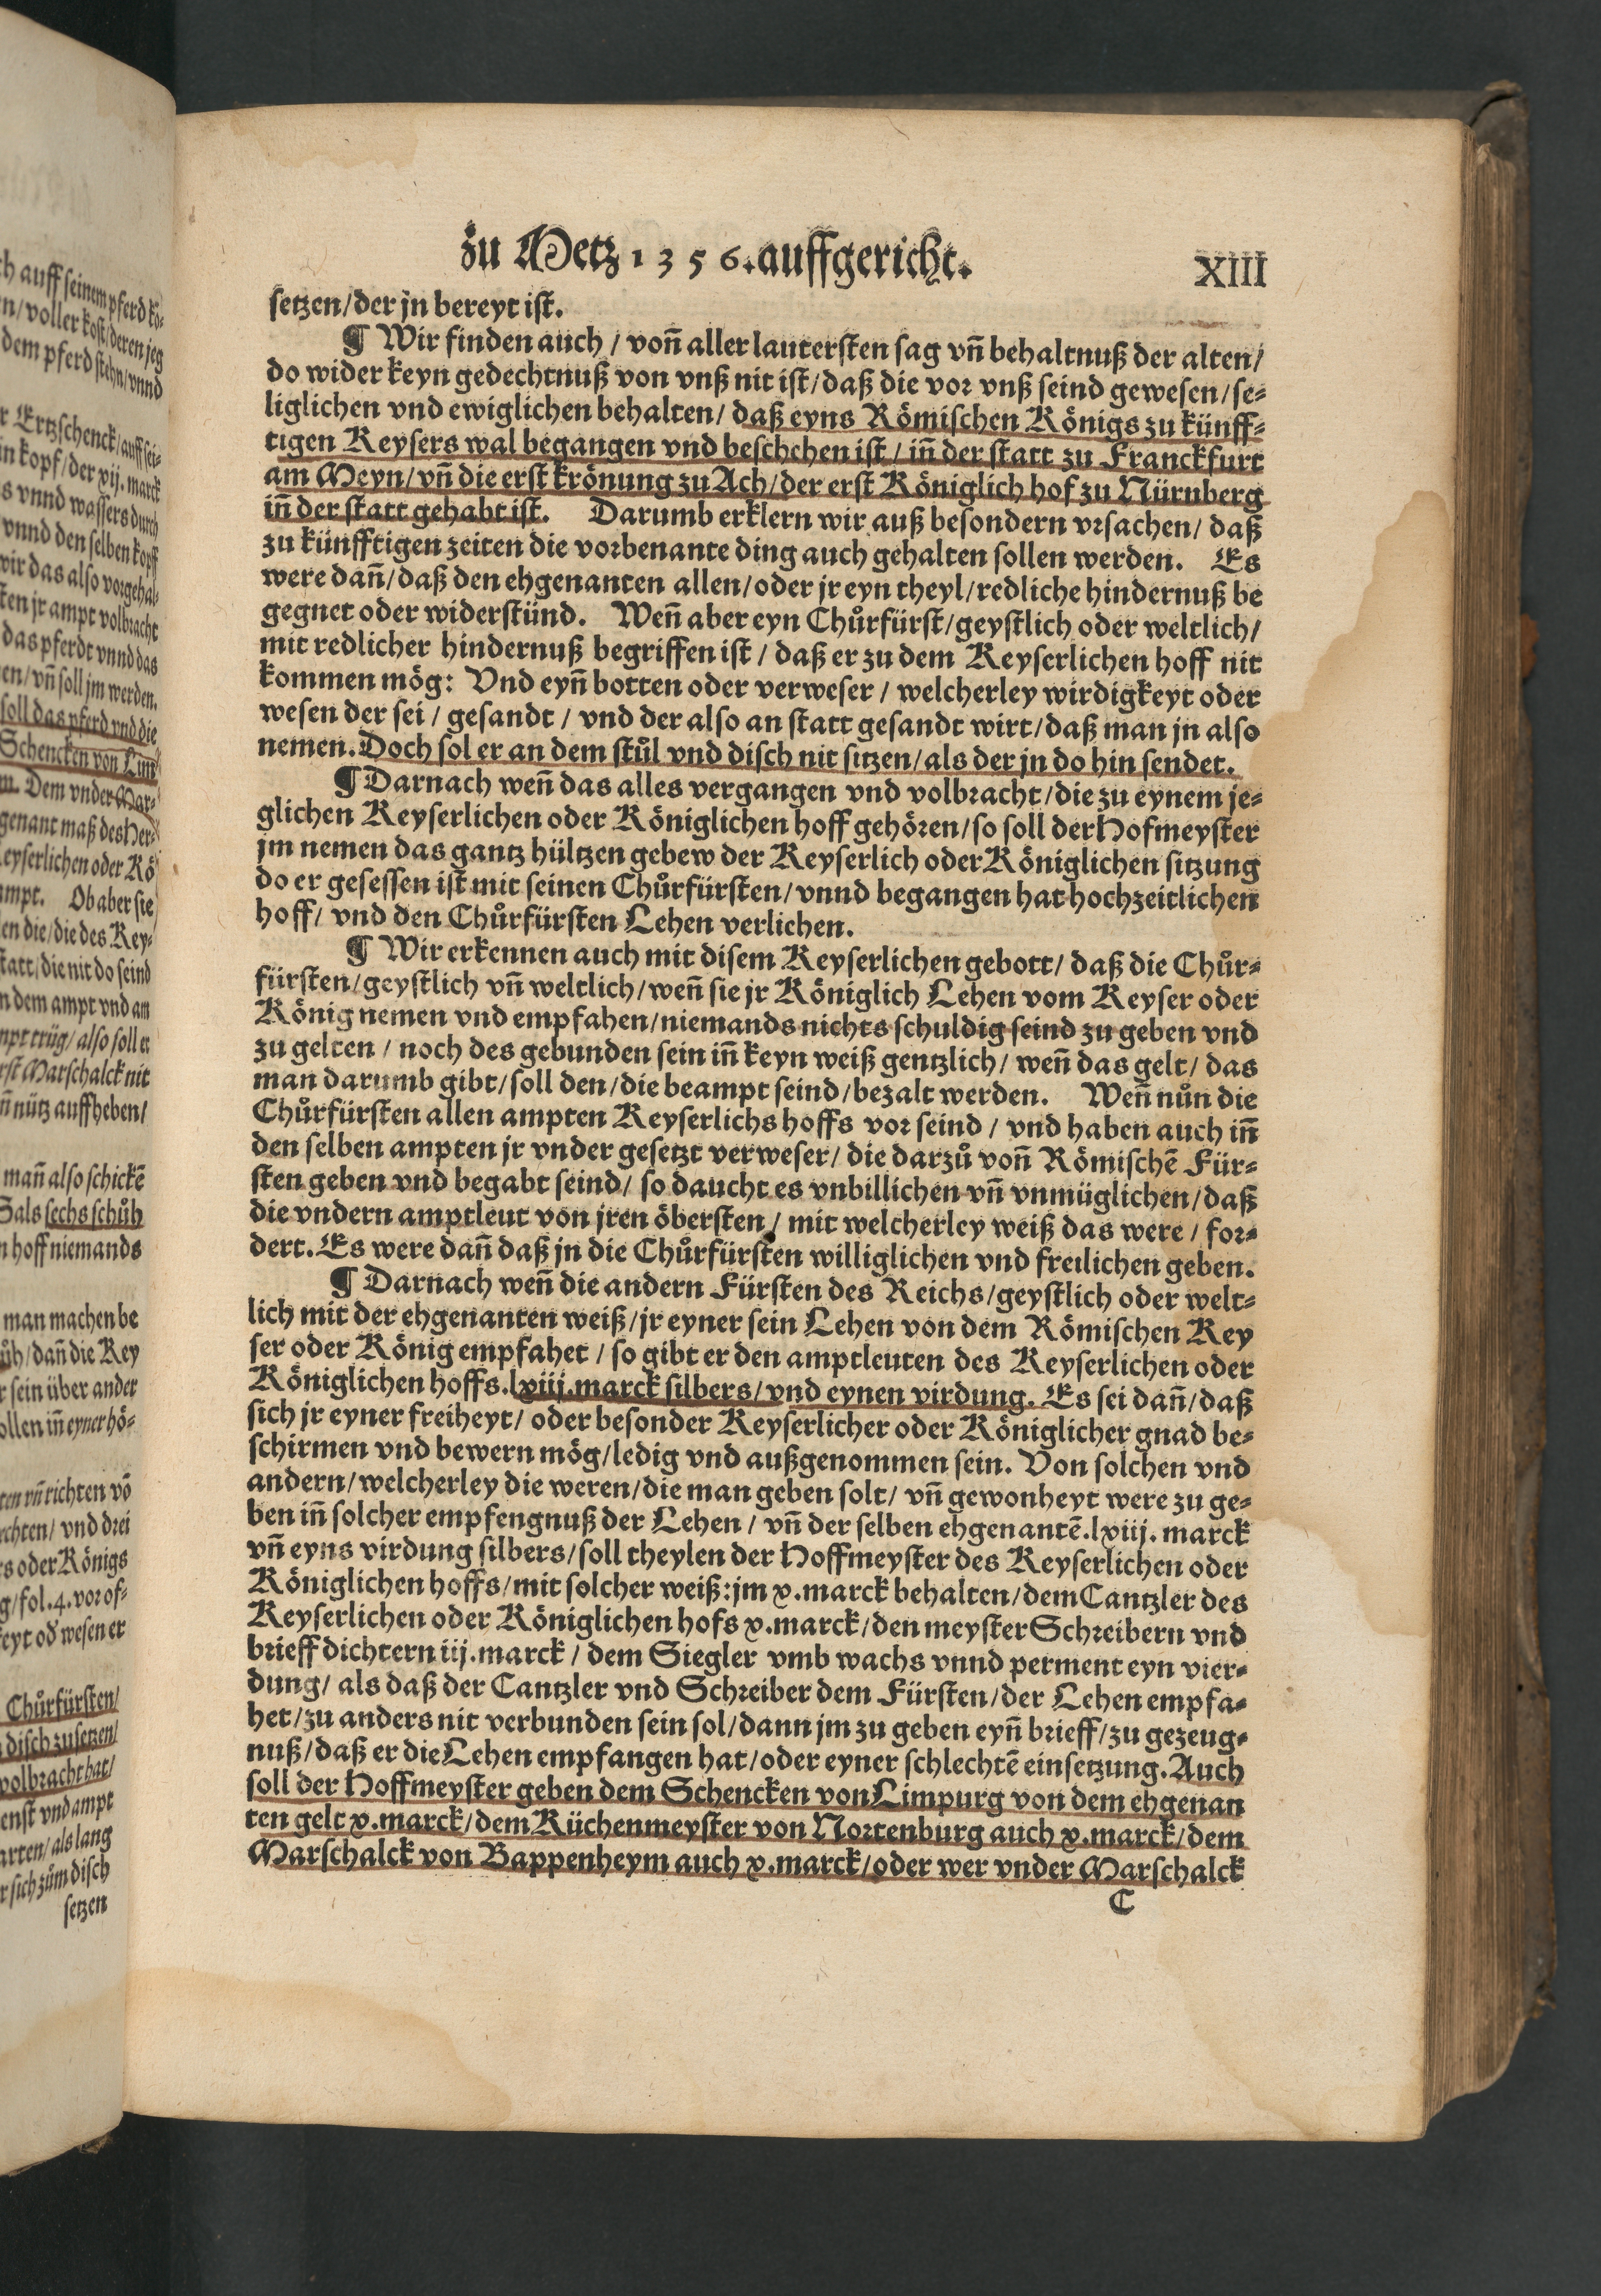 ch auff seinem pferd kö-
n/ voller kost/ deren jeg
dem pferd stehn/ vnnd
r Ertzschenck/ auff sei-
in kopf/ der xij. marck
s vnnd wassers durch
vnnd den selben kopff
wir das also vorgehal-
ten jr ampt volbracht
das pferdt vnnd das
en/ vñ soll jm werden.
soll das pferd vnd die
Schencken von Lim
m. Dem vnder Mar-
genant maß des Her-
eyserlichen oder Kö
ampt. Ob aber sie
en die/ die des Key-
statt/ die nit do seind
n dem ampt vnd am
mpt trüg/ also soll er
rst Marschalck nit
ñ nütz auffheben/
mañ also schickē
als sechs schůh
n hoff niemands
man machen be
ůh/ dañ die Key
r sein über ander
ollen iñ eyner hö-
ten vñ richten vō
echten/ vnd drei
s oder Königs
g/ fol. 4. vor of-
keyt oď wesen er
Chůrfürsten/
disch zu setzen/
volbracht hat/
enst vnd ampt
arten/ als lang
r sich zům disch
setzen
zu Metz 1356. auffgericht.
XIII
setzen/ der jn bereyt ist.
¶ Wir finden auch / voñ aller lautersten sag vñ behaltnuß der alten/
do wider keyn gedechtnuß von vnß nit ist/ daß die vor vnß seind gewesen/ se-
liglichen vnd ewiglichen behalten/ daß eyns Römischen Königs zu künff-
tigen Keysers wal begangen vnd beschehen ist / iñ der statt zu Franckfurt
am Meyn/ vñ die erst krönung zu Ach/ der erst Königlich hof zu Nürnberg
iñ der statt gehabt ist. Darumb erklern wir auß besondern vrsachen/ daß
zu künfftigen zeiten die vorbenante ding auch gehalten sollen werden. Es
were dañ/ daß den ehgenanten allen/ oder jr eyn theyl/ redliche hindernuß be
gegnet oder widerstünd. Weñ aber eyn Chůrfürst/ geystlich oder weltlich/
mit redlicher hindernuß begriffen ist / daß er zu dem Keyserlichen hoff nit
kommen mög: Vnd eyñ botten oder verweser / welcherley wirdigkeyt oder
wesen der sei / gesandt / vnd der also an statt gesandt wirt/ daß man jn also
nemen. Doch sol er an dem stůl vnd disch nit sitzen/ als der jn do hin sendet.
¶ Darnach weñ das alles vergangen vnd volbracht/ die zu eynem je-
glichen Keyserlichen oder Königlichen hoff gehören/ so soll der Hofmeyster
jm nemen das gantz hültzen gebew der Keyserlich oder Königlichen sitzung
do er gesessen ist mit seinen Chůrfürsten/ vnnd begangen hat hochzeitlichen
hoff/ vnd den Chůrfürsten Lehen verlichen.
¶ Wir erkennen auch mit disem Keyserlichen gebott/ daß die Chůr-
fürsten/ geystlich vñ weltlich/ weñ sie jr Königlich Lehen vom Keyser oder
König nemen vnd empfahen/ niemands nichts schuldig seind zu geben vnd
zu gelten / noch des gebunden sein iñ keyn weiß gentzlich/ weñ das gelt/ das
man darumb gibt/ soll den/ die beampt seind/ bezalt werden. Weñ nůn die
Chůrfürsten allen ampten Keyserlichs hoffs vor seind / vnd haben auch iñ
den selben ampten jr vnder gesetzt verweser/ die darzů voñ Römischē Für-
sten geben vnd begabt seind/ so daucht es vnbillichen vñ vnmüglichen/ daß
die vndern amptleut von jren öbersten/ mit welcherley weiß das were / for-
dert. Es were dañ daß jn die Chůrfürsten williglichen vnd freilichen geben.
¶ Darnach weñ die andern Fürsten des Reichs/ geystlich oder welt-
lich mit der ehgenanten weiß/ jr eyner sein Lehen von dem Römischen Key
ser oder König empfahet / so gibt er den amptleuten des Keyserlichen oder
Königlichen hoffs. lxiij. marck silbers/ vnd eynen virdung. Es sei dañ/ daß
sich jr eyner freiheyt/ oder besonder Keyserlicher oder Königlicher gnad be-
schirmen vnd bewern mög/ ledig vnd außgenommen sein. Von solchen vnd
andern/ welcherley die weren/ die man geben solt/ vñ gewonheyt were zu ge-
ben iñ solcher empfengnuß der Lehen / vñ der selben ehgenantē. lxiij. marck
vñ eyns virdung silbers/ soll theylen der Hoffmeyster des Keyserlichen oder
Königlichen hoffs/ mit solcher weiß: jm x. marck behalten/ dem Cantzler des
Keyserlichen oder Königlichen hofs x. marck/ den meyster Schreibern vnd
brieff dichtern iij. marck / dem Siegler vmb wachs vnnd perment eyn vier-
dung/ als daß der Cantzler vnd Schreiber dem Fürsten/ der Lehen empfa-
het/ zu anders nit verbunden sein sol/ dann jm zu geben eyñ brieff/ zu gezeug-
nuß/ daß er die Lehen empfangen hat/ oder eyner schlechtē einsetzung. Auch
soll der Hoffmeyster geben dem Schencken von Limpurg von dem ehgenan
ten gelt x. marck/ dem Küchenmeyster von Nortenburg auch x. marck/ dem
Marschalck von Bappenheym auch x. marck/ oder wer vnder Marschalck
C